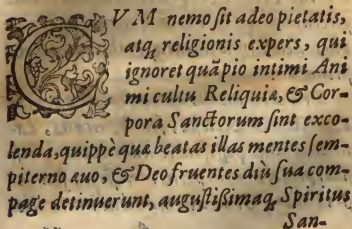 CVM nemo sit adeo pietatis,
atq; religionis expers, qui
ignoret quã pio intimi Ani
mi cultu Reliquiæ, & Cor-
pora Sanctorum sint exco-
lenda, quippè quæ beatas illas mentes sem-
piterno æuo, & Deo fruentes diù sua com-
page detinuerunt, augustißimaq; Spiritus
San-